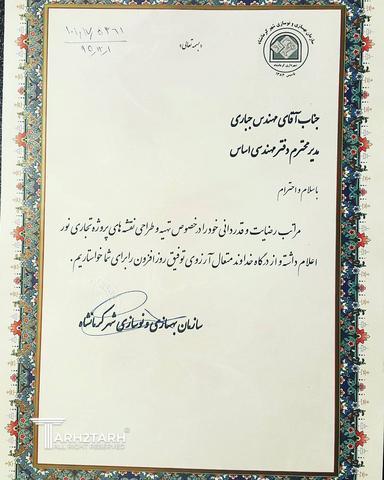 ۱۰۱٫۱۷/۵۳۶۱
۹۵٫۱۲٫۱
«بسمه تعالی»
سازمان بهسازی و نوسازی شهر کرمانشاه
شهرداری کرمانشاه
جناب آقای مهندس جباری
مدیر محترم دفتر مهندسی اساس
با سلام و احترام
مراتب رضایت و قدردانی خود را در خصوص تهیه و طراحی نقشه های پروژه تجاری نور
اعلام داشته و از درگاه خداوند متعال آرزوی توفیق روزافزون را برای شما خواستاریم.
سازمان بهسازی و نوسازی شهر کرمانشاه
TARH2TARH®
ALL RIGHT RESERVED